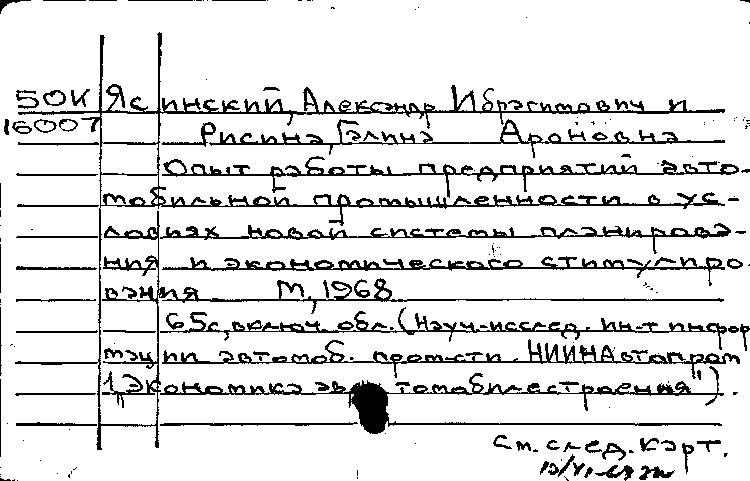 50К Ясинский, Александр Ибрагимович и
16007 Рисина, Галина Ароновна
Опыт работы предприятий авто-
мобильной промышленности в ус-
ловиях новой системы планирова-
ния и экономического стимулиро
вания М, 1968
65с, включ. обл. (Науч-исслед. ин-т инфор
мации автомоб. пром-сти. НИИНАвтопром
"Экономика автомобилестроения").
См. след. карт.